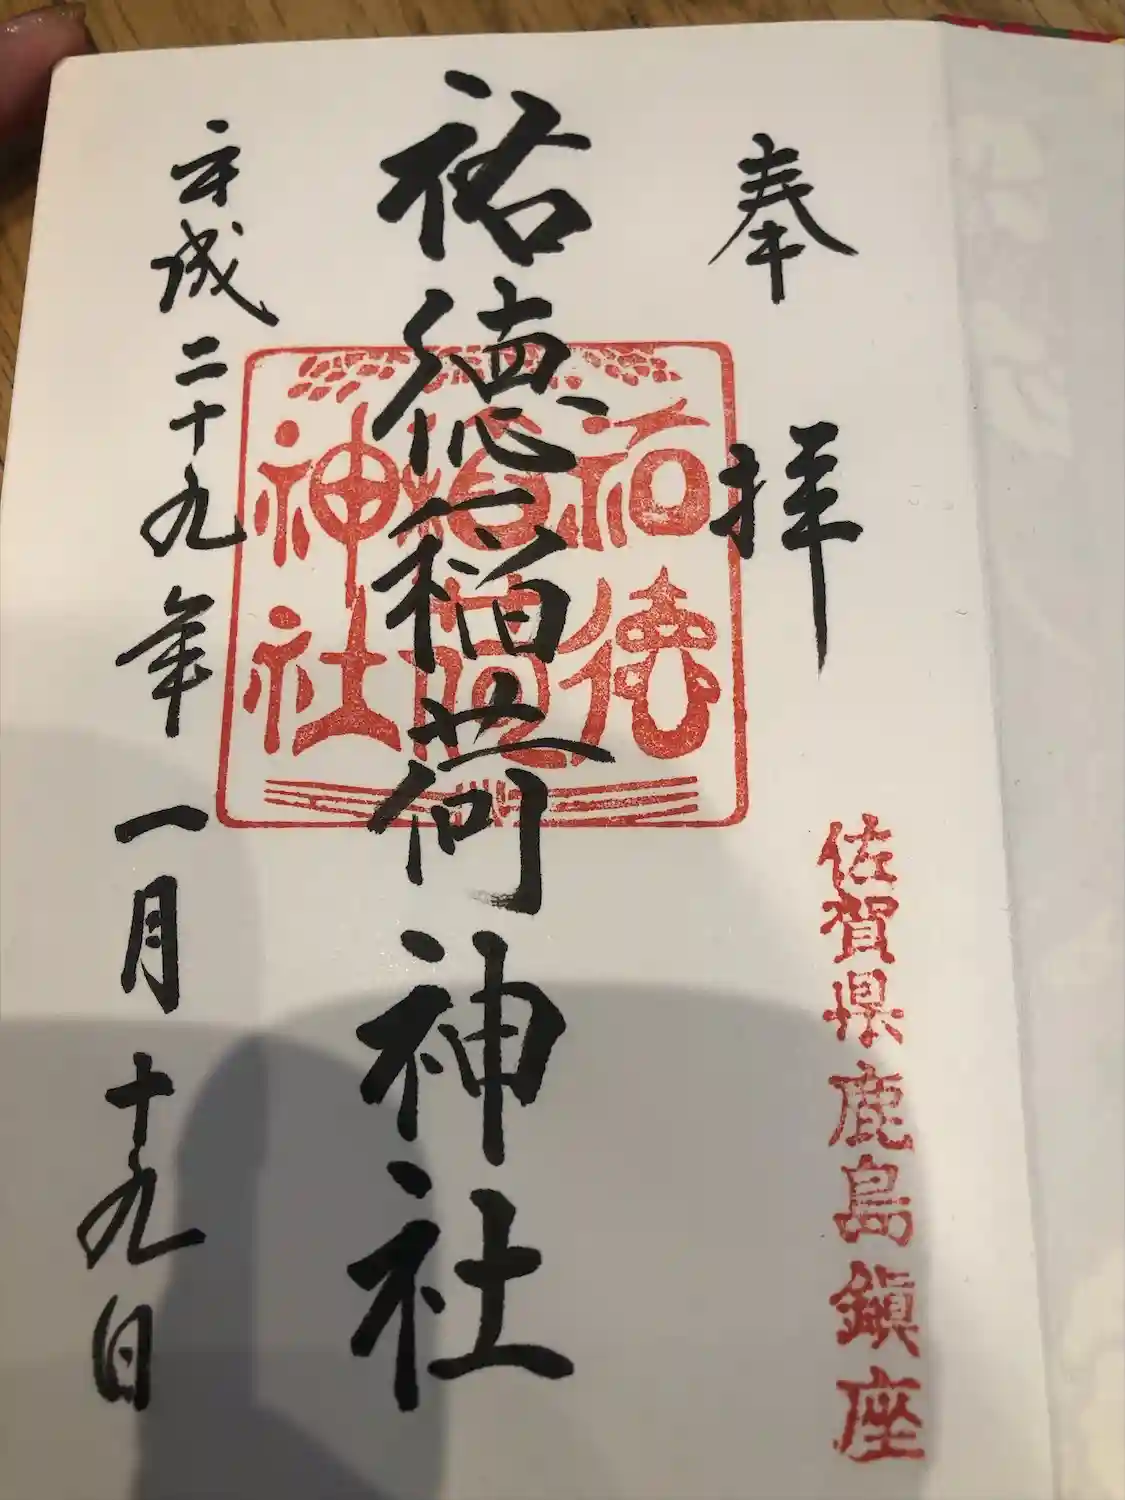 奉拝
佐賀県鹿島鎮座
祐徳稲荷神社
祐徳
稲荷
神社
平成二十九年一月十九日